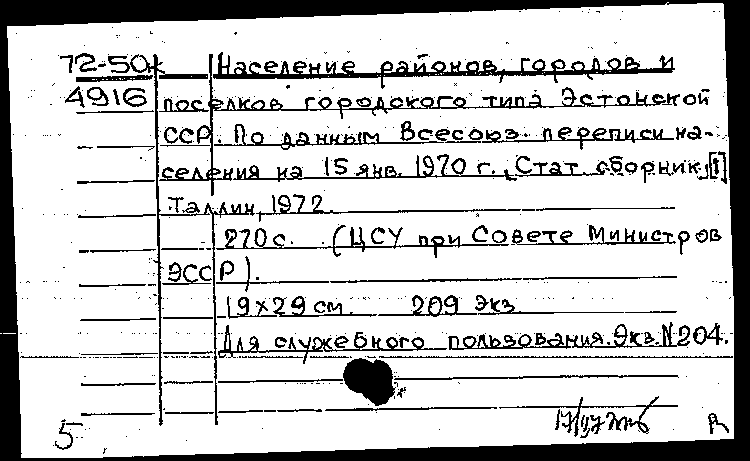 72-50к Население районов, городов и
4916 поселков городского типа Эстонской
ССР. По данным Всесоюз. переписи на-
селения на 15 янв. 1970 г. [Стат. сборник] [1]
Таллин, 1972.
270 с. (ЦСУ при Совете Министров
ЭССР).
19×29 см. 209 экз.
Для служебного пользования. Экз. N 204.
5